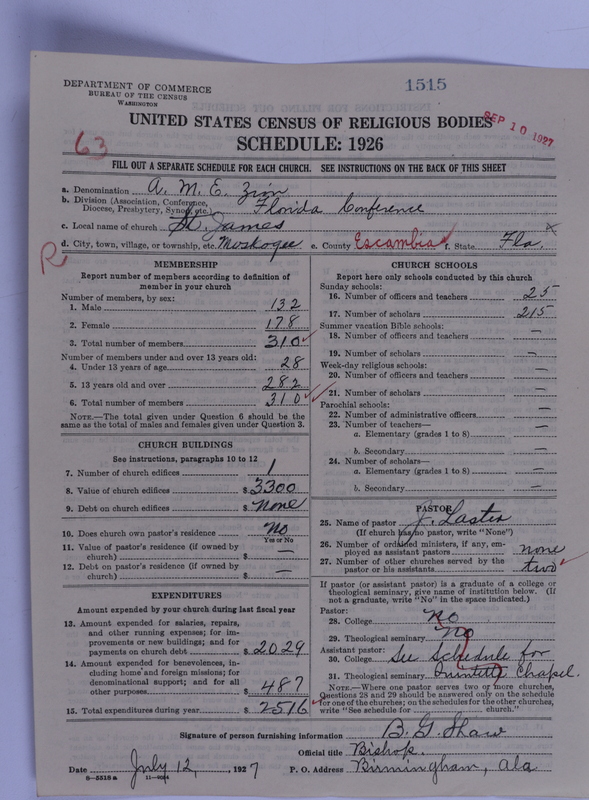 1515
DEPARTMENT OF COMMERCE
BUREAU OF THE CENSUS
WASHINGTON
SEP 10 1927
UNITED STATES CENSUS OF RELIGIOUS BODIES
63
SCHEDULE: 1926
FILL OUT A SEPARATE SCHEDULE FOR EACH CHURCH. SEE INSTRUCTIONS ON THE BACK OF THIS SHEET
a. Denomination A. M. E. Zion
b. Division (Association, Conference, Diocese, Presbytery, Synod, etc.) Florida Conference
c. Local name of church St. James
R
d. City, town, village, or township, etc. Muskogee e. County Escambia f. State Fla.
MEMBERSHIP
Report number of members according to definition of
member in your church
Number of members, by sex:
1. Male 132
2. Female 178
3. Total number of members 310
Number of members under and over 13 years old:
4. Under 13 years of age 28
5. 13 years old and over 282
6. Total number of members 310
NOTE.—The total given under Question 6 should be
same as the total of males and females given under Question 3.
CHURCH BUILDINGS
See instructions, paragraphs 10 to 12
7. Number of church edifices 1
8. Value of church edifices $ 3300
9. Debt on church edifices $ None
10. Does church own pastor's residence? No
Yes or No
11. Value of pastor's residence (if owned by
church) $ —
12. Debt on pastor's residence (if owned by
church) $ —
EXPENDITURES
Amount expended by your church during last fiscal year
13. Amount expended for salaries, repairs,
and other running expenses; for im-
provements or new buildings; and for
payments on church debt $ 2029
14. Amount expended for benevolences, in-
cluding home and foreign missions; for
denominational support; and for all
other purposes $ 487
15. Total expenditures during year $ 2516
CHURCH SCHOOLS
Report here only schools conducted by this church
Sunday schools:
16. Number of officers and teachers 25
17. Number of scholars 215
Summer vacation Bible schools:
18. Number of officers and teachers —
19. Number of scholars —
Week-day religious schools:
20. Number of officers and teachers —
21. Number of scholars —
Parochial schools:
22. Number of administrative officers —
23. Number of teachers—
a. Elementary (grades 1 to 8) —
b. Secondary —
24. Number of scholars—
a. Elementary (grades 1 to 8) —
b. Secondary —
PASTOR
25. Name of pastor J. Laster
(If church has no pastor, write "None")
26. Number of ordained ministers, if any, em-
ployed as assistant pastors none
27. Number of other churches served by the
pastor or his assistants two
If pastor (or assistant pastor) is a graduate of a college or
theological seminary, give name of institution below. (If
not a graduate, write "No" in the space indicated.)
Pastor:
28. College No
29. Theological seminary No
Assistant pastor:
30. College See Schedule for
31. Theological seminary Quintette Chapel.
NOTE.—Where one pastor serves two or more churches,
Questions 28 and 29 should be answered only on the schedule
for one of the churches; on the schedules for the other churches,
write "See schedule for church."
Signature of person furnishing information B. G. Shaw
Official title Bishop.
Date July 12, 1927 P. O. Address Birmingham, Ala
8—5518a